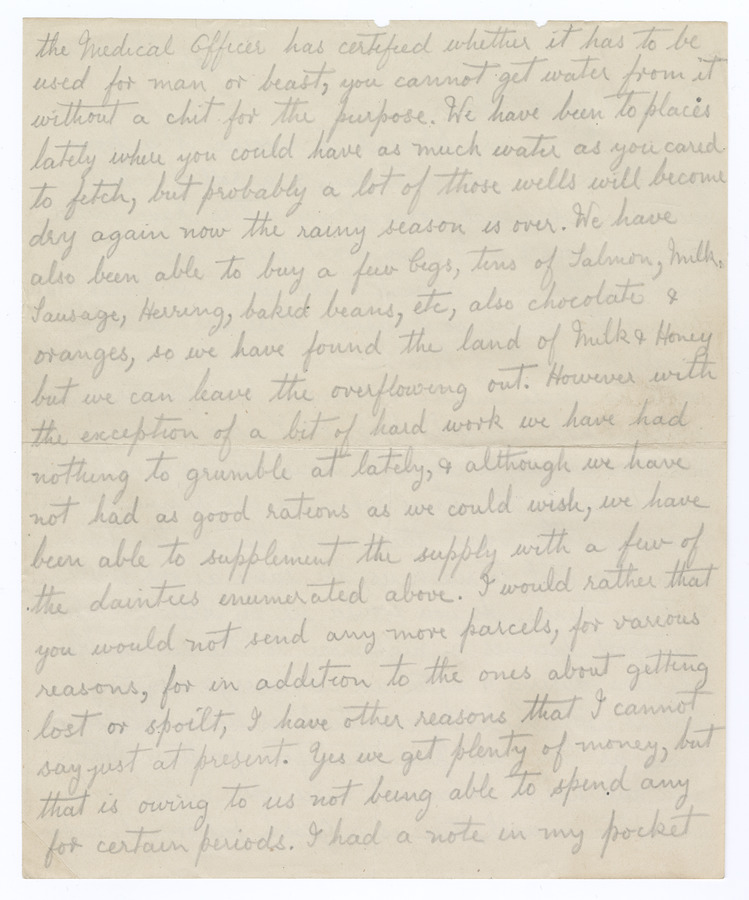 the Medical Officer has certified whether it has to be
used for man or beast, you cannot get water from it
without a chit for the purpose. We have been to places
lately where you could have as much water as you cared
to fetch, but probably a lot of those wells will become
dry again now the rainy season is over. We have
also been able to buy a few eggs, tins of Salmon, Milk,
Sausage, Herring, baked beans, etc, also chocolate &
oranges, so we have found the land of Milk & Honey
but we can leave the overflowing out. However with
the exception of a bit of hard work we have had
nothing to grumble at lately, & although we have
not had as good rations as we could wish, we have
been able to supplement the supply with a few of
the dainties enumerated above. I would rather that
you would not send any more parcels, for various
reasons, for in addition to the ones about getting
lost or spoilt, I have other reasons that I cannot
say just at present. Yes we get plenty of money, but
that is owing to us not being able to spend any
for certain periods. I had a note in my pocket